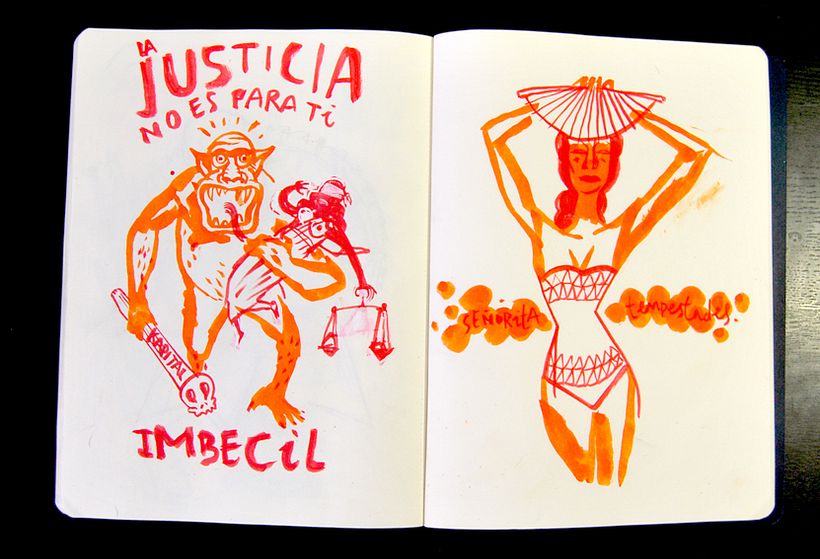 LA
JUSTICIA
NO ES PARA Ti
KAPITAL
IMBECiL
SEÑORitA
tempestades.